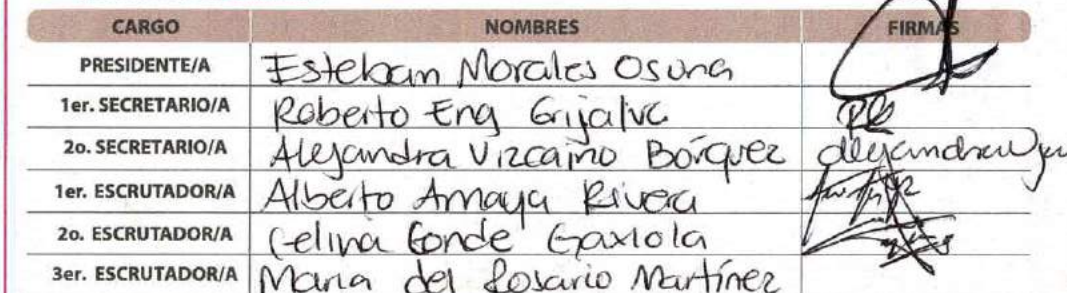 CARGO NOMBRES FIRMAS
PRESIDENTE/A Esteban Morales Osuna
1er. SECRETARIO/A Roberto Eng Grijalva
2o. SECRETARIO/A Alejandra Vizcaino Bórquez
1er. ESCRUTADOR/A Alberto Amaya Rivera
2o. ESCRUTADOR/A Celina Conde Gaxiola
3er. ESCRUTADOR/A Maria del Rosario Martínez